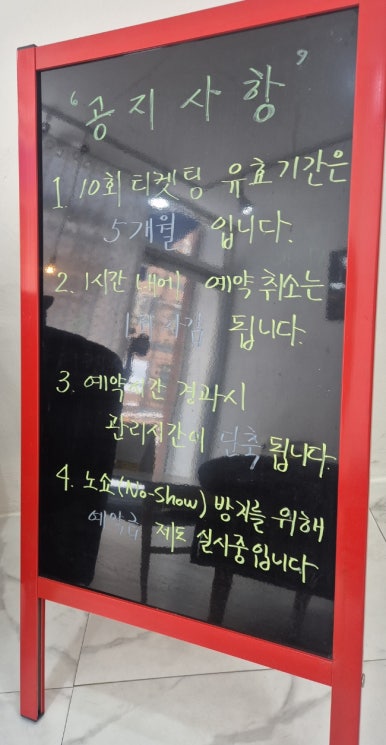 ‘공지사항’
1. 10회 티켓팅 유효기간은
5개월 입니다.
2. 1시간 내에 예약 취소는
1회 차감 됩니다.
3. 예약시간 경과시
관리시간이 단축 됩니다
4. 노쇼(No-Show) 방지를 위해
예약금 제도 실시중입니다